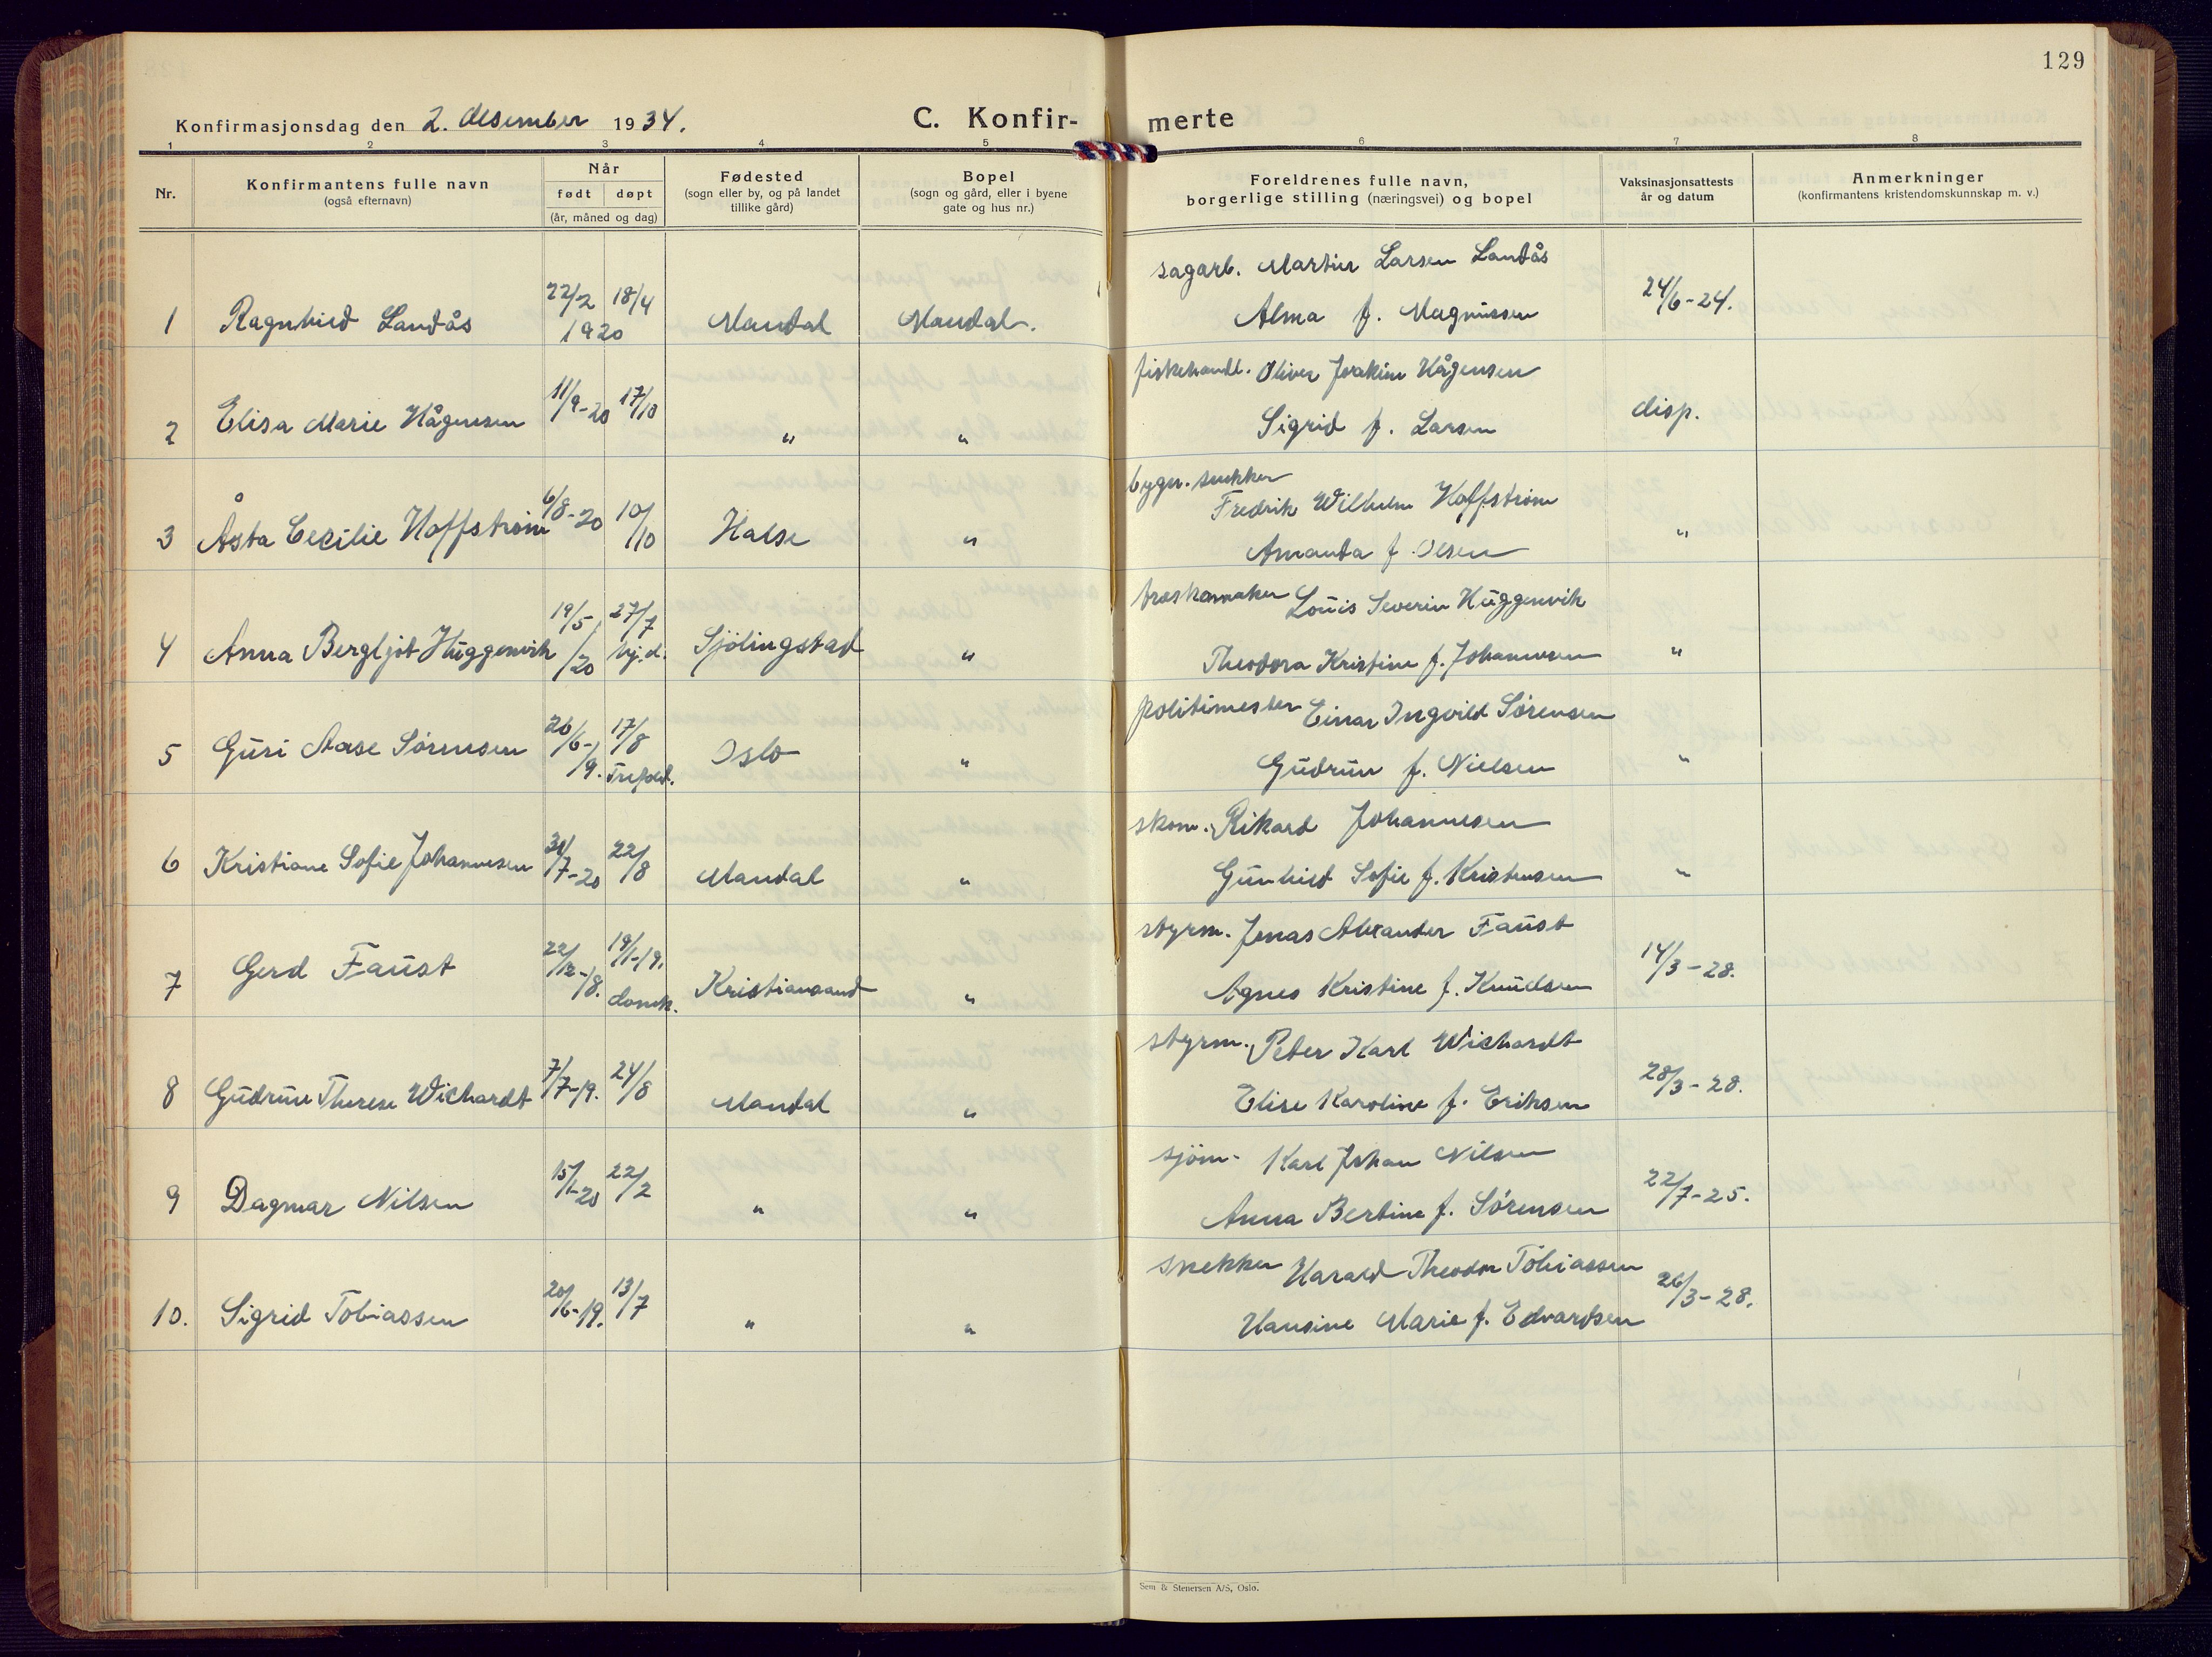 129
Konfirmasjonsdag den 2. desember 1934.
C. Konfir-merte
1 2 3 4 5 6 7 8
Nr.
Konfirmantens fulle navn
(også efternavn)
Når
født døpt
(år, måned og dag)
Fødested
(sogn eller by, og på landet
tillike gård)
Bopel
(sogn og gård, eller i byene
gate og hus nr.)
Foreldrenes fulle navn,
borgerlige stilling (næringsvei) og bopel
Vaksinasjonsattests
år og datum
Anmerkninger
(konfirmantens kristendomskunnskap m. v.)
1 Ragnhild Landås 22/2 18/4 1920 Mandal Mandal.
sagarb. Martin Larsen Landås
Alma f. Magnussen 24/6-24.
2 Elisa Marie Hågensen 11/9-20 17/10 " "
fiskehandl. Oliver Joakim Hågensen
Sigrid f. Larsen disp.
3 Åsta Cecilie Hoffstrøm 6/8-20 10/10 Halse "
bygn. snekker
Fredrik Wilhelm Hoffstrøm
Amanda f. Olsen "
4 Anna Bergljot Huggenvik 19/5/20 27/7 hj.d. Sjölingstad "
træskomaker Louis Severin Huggenvik
Theodora Kristine f. Johannesen "
5 Guri Aase Sørensen 26/6-19. 17/8 Trefold. Oslo "
politimester Einar Ingvild Sørensen
Gudrun f. Nielsen "
6 Kristiane Sofie Johannesen 31/7-20 22/8 Mandal "
skom. Rikard Johannesen
Gunhild Sofie f. Kristensen "
7 Gerd Faust 22/12-18. 19/1-19. domk. Kristiansand "
styrm. Jonas Alexander Faust
Agnes Kristine f. Knudsen 14/3-28.
8 Gudrun Therese Wichardt 7/7-19. 24/8 Mandal "
styrm. Peter Karl Wichardt
Elise Karoline f. Eriksen 28/3-28.
9 Dagmar Nilsen 15/1-20 22/2 " "
sjöm. Karl Johan Nilsen
Anna Bertine f. Sørensen 22/7-25.
10. Sigrid Tobiassen 20/6-19. 13/7 " "
snekker Harald Theodor Tobiassen
Hansine Marie f. Edvardsen 26/3-28.
Sem & Stenersen A/S, Oslo.